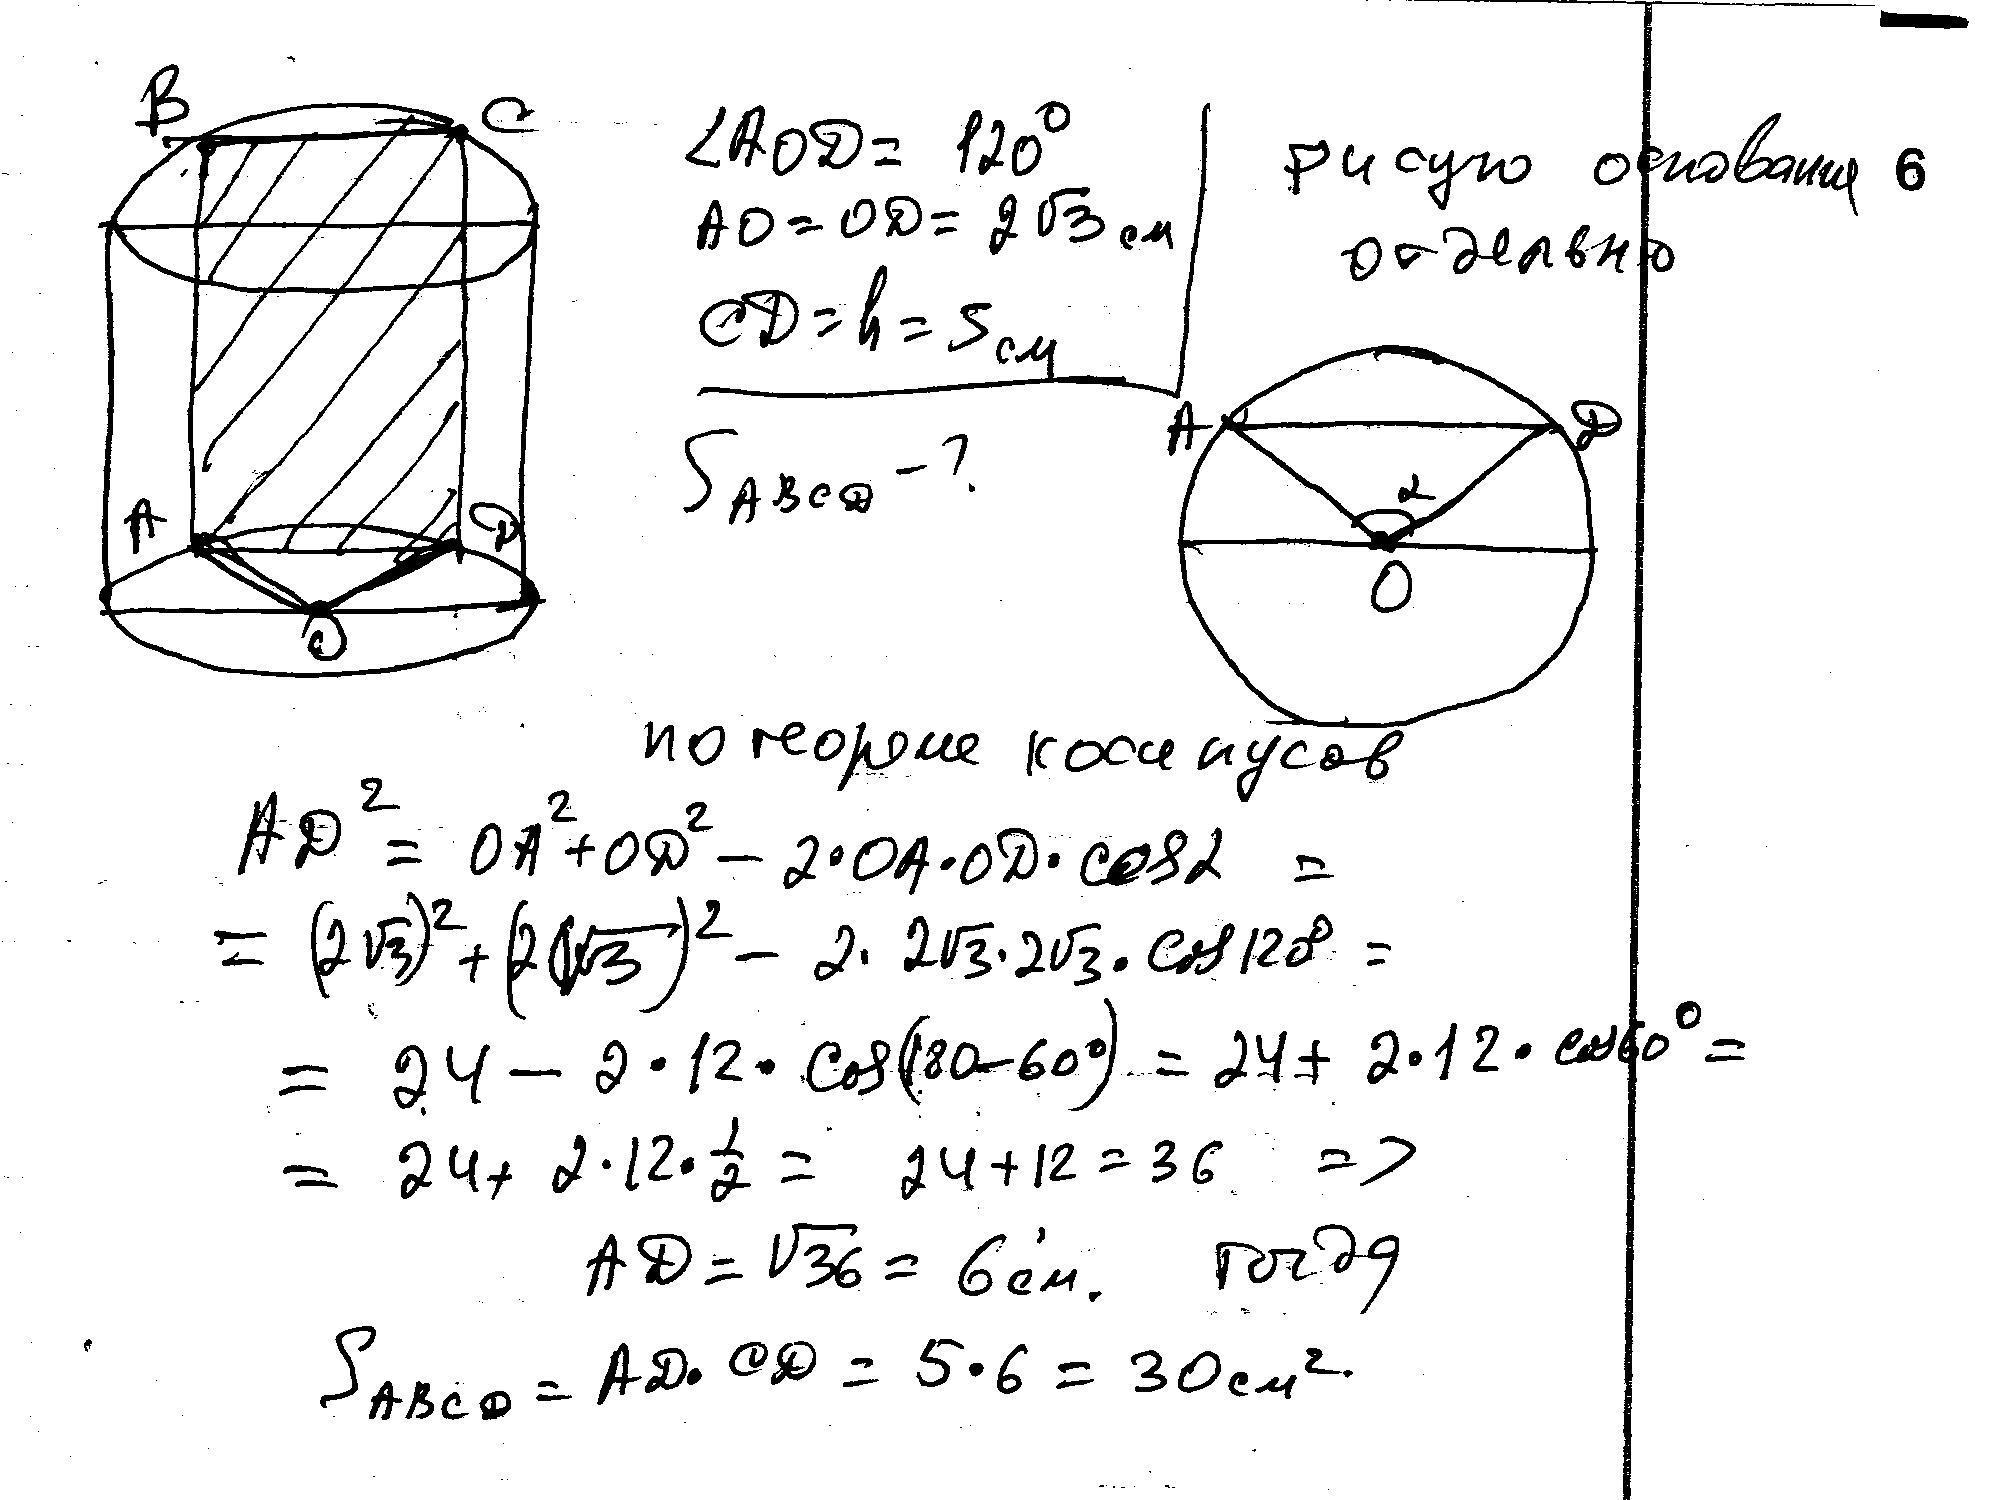 B
C
∠AOD = 120°
AO = OD = 2√3 см
CD = h = 5 см
S ABCD – ?
A
D
O
рисую основание 6
отдельно
A
D
α
O
по теореме косинусов
AD² = OA² + OD² – 2·OA·OD·cosα =
= (2√3)² + (2√3)² – 2·2√3·2√3·cos120° =
= 24 – 2·12·cos(180–60°) = 24 + 2·12·cos60° =
= 24 + 2·12·1/2 = 24 + 12 = 36 =>
AD = √36 = 6 см. тогда
S ABCD = AD·CD = 5·6 = 30 см².